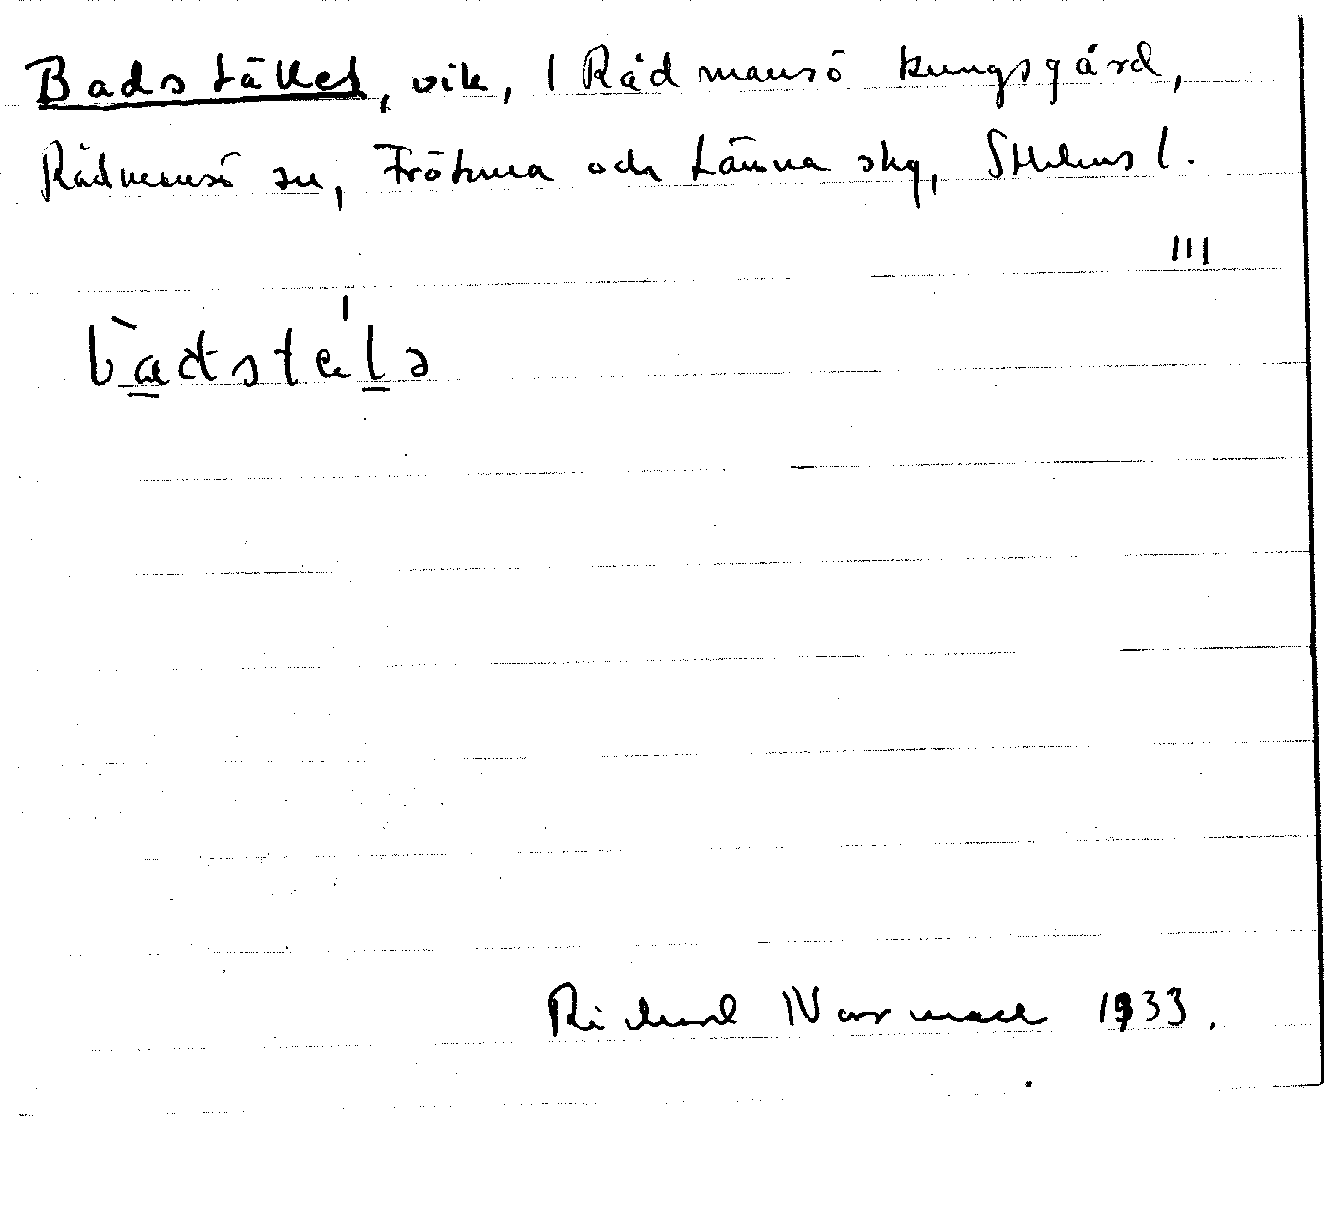 Badstället, vik, 1 Rådmansö kungsgård,
Rådmansö sn, Frötuna och Länna skg, Sthlms l.
III
bàdstɛ́lə
Richard Norrman 1933.